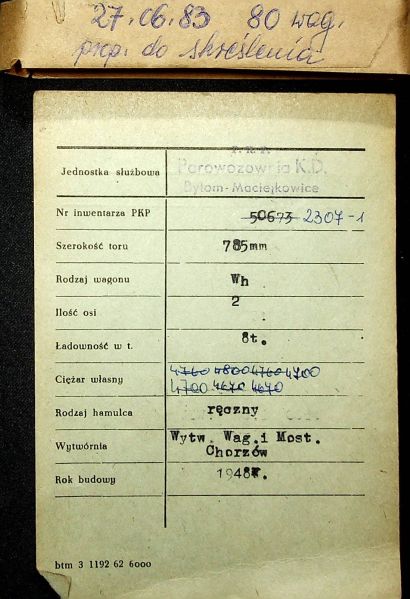 27.06.83 80 wag.
pkp. do skreślenia
P.K.P.
Parowozownia K.D.
Bytom-Maciejkowice
Jednostka służbowa
Nr inwentarza PKP 50673 2307-1
Szerokość toru 785mm
Rodzaj wagonu Wh
Ilość osi 2
Ładowność w t. 8t.
4760 4800 4760 4700
Ciężar własny
4700 4670 4670
Rodzaj hamulca ręczny
Wytwórnia Wytw. Wag.i Most.
Chorzów
Rok budowy 1948r.
btm 3 1192 62 6000